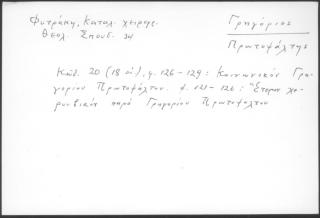 Φυτράκη, Καταλ. χειρογρ.
Θεολ. Σπουδ. 34
Γρηγόριος
Πρωτοψάλτης
Κώδ. 20 (18 αἰ), φ. 126-129: Κοινωνικὸν Γρη-
γορίου Πρωτοψάλτου. φ. 121-126: Ἕτερον χε-
ρουβικὸν παρὰ Γρηγορίου Πρωτοψάλτου